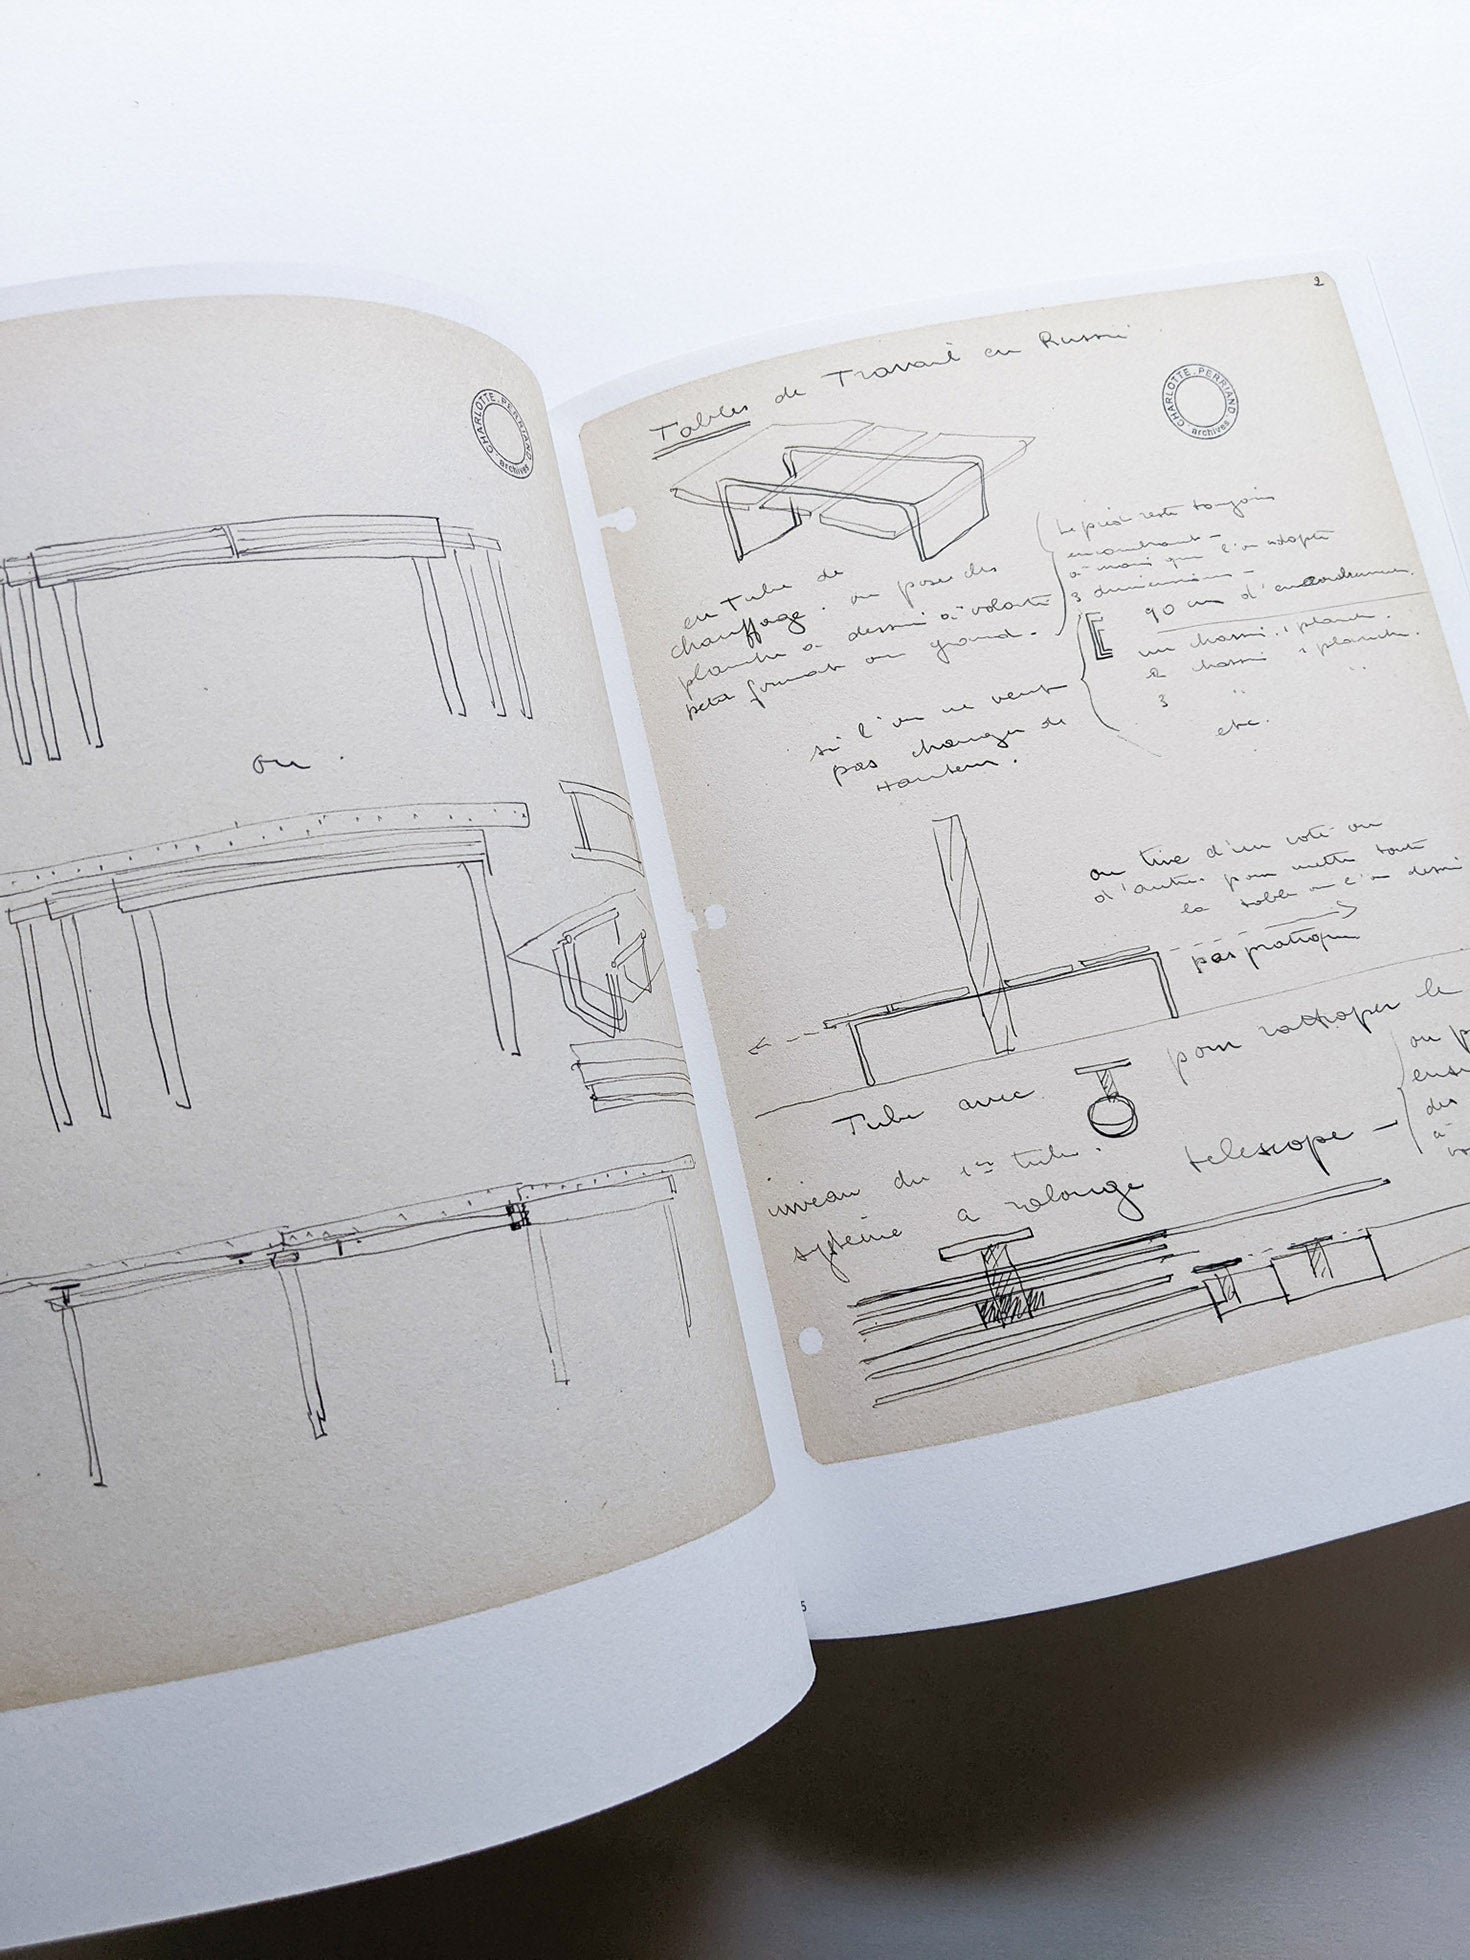 CHARLOTTE.PERRIAND.
archives
ou.
5
2
Tables de Travail en Russie
CHARLOTTE.PERRIAND.
archives
en Tube de
chauffage. on pose des
planche à dessin à volonté
petit format ou grand.
Le pied reste toujours
encombrant -
à moins que l'on adopte
3 dimensions -
90 cm d'
un chassi. 1 planche.
2 chassi 1 planche.
3 " "
etc.
si l'on ne veut
pas changer de
Hauteur.
on tire d'un coté ou
d'autre. pour mettre toute
la table ou l'on dessine
pas pratique
Tube avec pour rattraper le
niveau du 1er tube.
système a ralonge telescope -
on p
des
à